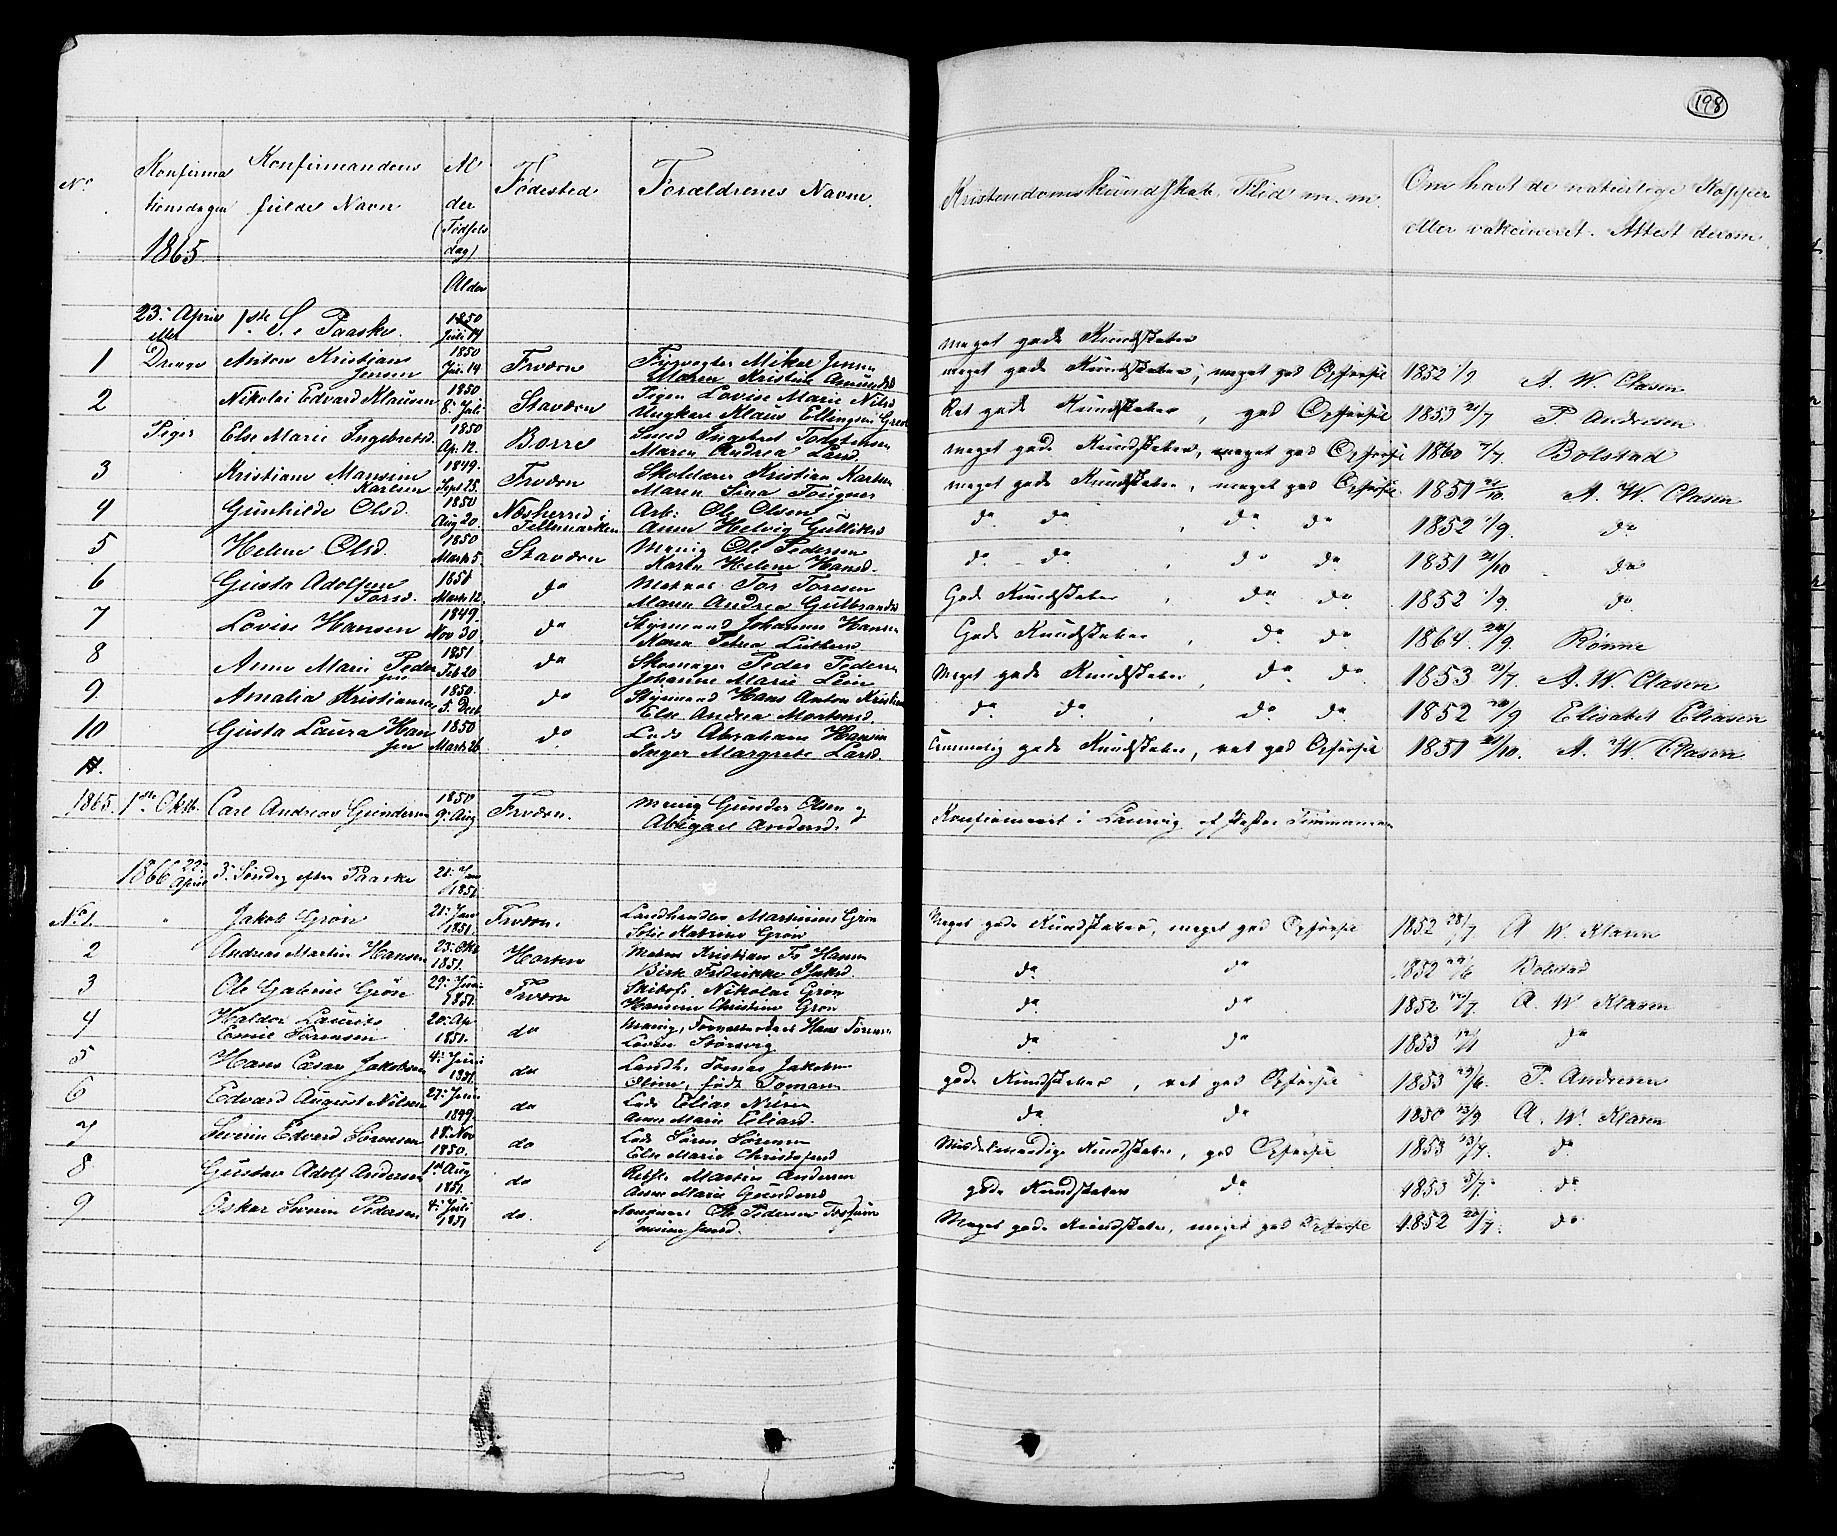 198
No
Konfirma
tionsdagen
1865.
Konfirmandens
fulde Navn
Al
der
(Fødsels
dag)
Alder
Fødested
Forældrenes Navn.
Kristendomskundskab, Flid m. m.
Om havt de naturlige Kopper
eller vakcineret. Attest derom.
23: April 1ste S. e Paaske. 1850
Juli 14
meget gode Kundskaber
1 Drenge Anton Kristian Jensen 1850 14 Fredvern Mikel Jensen
Maren Kristine
meget gode Kundskaber, meget god Opførsel 1852 1/9 A. W. Clasen
2 Nikolai Edvard Klausen 1850 8: Juli Stavern Pigen Lovise Marie Nilsd
Ungkarl Klaus Ellingsen
Ret gode Kundskaber, god Opførsel 1853 21/7 P. Andresen
Piger Else Marie Ingebretsd. 1850 Ap. 12. Borre Smed Ingebret Torstensen
Maren Andrea Larsd.
meget gode Kundskaber, meget god Opførsel 1860 7/7. Bolstad
3 Kristiane Karlsen 1849. Sept 25. Skolelærer Kristian Karlsen
Maren
meget gode Kundskaber, meget god Opførsel. 1851 21/10. A. W. Clasen
4 Gunhilde Olsd. 1850 Aug 20. i Tellemarken Arb: Ole Olsen
Anne Helvig Gulliksd
do do, do do 1852 1/9. do
5 Helene Olsd. 1850 Marts 5. Stavern Menig Ole Pedersen
Karen Helene Hansd.
do do, do do 1851 21/10 do
6 Gusta Adolfine Torsd. 1851 Marts 12. do Matros Tor Toresen
Maren Andrea Gulbrandsd
Gode Kundskaber, do do 1852 1/9. do
7 Lovise Hansen 1849. Nov 30. do Styrmand Johannes Hansen
Petra
Gode Kundskaber, do do 1864. 28/9. Rønne
8 Anne Marie Pedersen 1851 Feb 20 do Skomager Peder Pedersen
Johanne Marie
Meget gode Kundskaber, do do 1853 21/7. A. W. Clasen
9 Amalia Kristiansen 1850. 5. Decb do Styrmand Hans Anton Kristiansen
Else Andrea Mortensd.
do do, do do 1852 20/9 Elisabet Eliasen
10 Gusta Laura Hansen 1850 Marts 26. do Lods Abraham Hansen
Inger Margrete Larsd.
Temmelig gode Kundskaber, ret god Opførsel 1851 21/10. A. W. Clasen
11.
1865. 1ste Oktb. Carl Andreas Gundersen 1850 9. Aug Menig Gunder Olsen og
Abigael Andersd.
Konfirmeret i Laurvig af Timmerman
1866 22: April 3: Søndag efter Paaske 21: Jan 1851.
No 1. Jakob Grøn 21: Jan 1851. Landhandler Martinius Grøn
Katrine Grøn
Meget gode Kundskaber, meget god Opførsel 1852 28/7 A. W. Klasen
2 Andreas Martin Hansen 23: Okt 1851. Horten Matros Kristian Hansen
Fredrikke
do do 1852 Bolstad
3 Ole Gabriel Grøn 29: Juni 1851. Nikolai Grøn
Christine Grøn
do do 1852 A. W. Klasen
4 Haldor Laurits Sørensen 20: Ap. 1851. do Menig, Hans Sørensen
do do 1853 do
5 Hans Cæsar Jakobsen 4: Juni 1851. do Landh. Tomas Jakobsen
Oline, født Tomasen
gode Kundskaber, ret god Opførsel 1853 29/6. P. Andresen
6 Edvard August Nilsen 27: Juni 1849. do Lods Elias Nilsen
Anne Marie Eliasd.
do do 1850 13/9 A. W. Klasen
7 Severin Edvard Sørensen 18: Nov 1850. do Lods Søren Sørensen
Else Marie Christofersd
Middelmaadige Kundskaber, god Opførsel 1853 do
8 Gustav Adolf Andersen 1st Aug 1851. do Martin Andersen
Anne Marie Gundersd
gode Kundskaber do 1853 do
9 Oskar Severin Pedersen 4: Juli 1851 do. Ole Pedersen
Meget gode Kundskaber, meget god Opførsel 1852 do